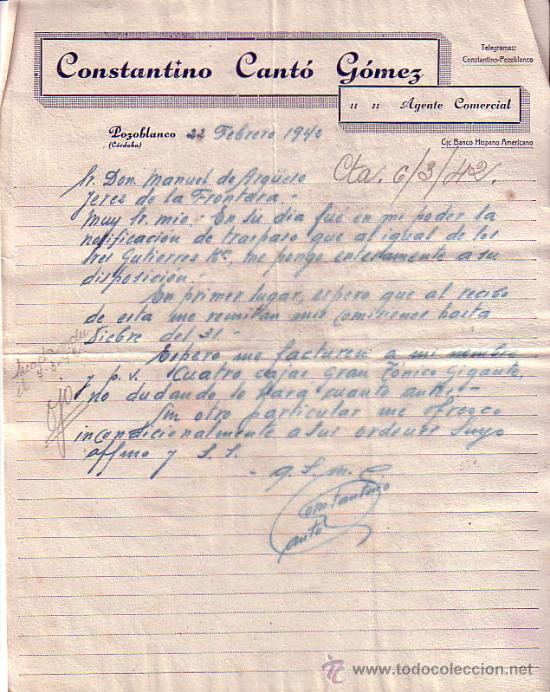 Telegramas:
Constantino-Pozoblanco
Constantino Cantó Gómez
:: :: Agente Comercial
Pozoblanco 22 Febrero 1942
(Córdoba)
C/c Banco Hispano Americano
Cta. 6/3/42.
Sr. Don Manuel de Argüeso
Jerez de la Frontera.-
Muy Sr. mio: En su dia fué en mi poder la
notificación de traspaso que al igual de los
Sres Gutierres Ms, me pongo enteramente a su
disposición.-
En primer lugar, espero que al recibo
de esta me remitan mis comisiones hasta
Dicbre del 31.-
Espero me facturen a mi nombre
y p.v. Cuatro cajas Gran Tónico Gigante,
no dudando lo hara cuanto antes.-
Sin otro particular me ofrezco
incondicionalmente a sus ordenes suyo
affmo y S.S.
q. s. m. e.
Constantino
Cantó
www.todocoleccion.net